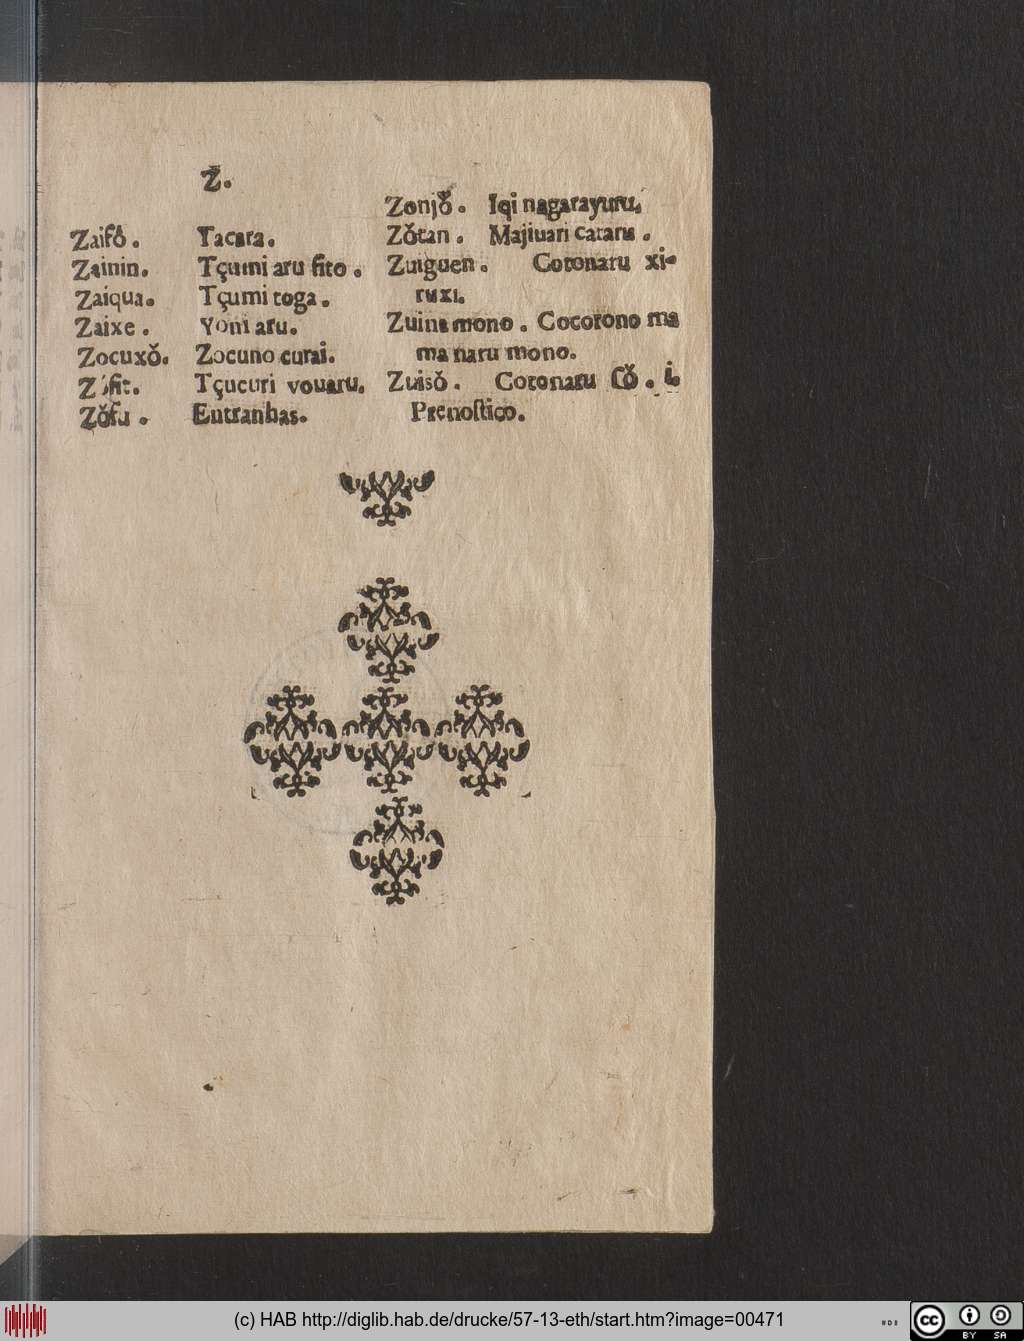 Z.
Zaifô. Tacara.
Zainin. Tçumi aru fito.
Zaiqua. Tçumi toga.
Zaixe. Yoni aru.
Zocuxǒ. Zocuno curai.
Tçucuri vouaru.
Zǒfu. Entranhas.
Zonjǒ. Iqi nagarayuru.
Zǒtan. Majiuari cataru.
Zuiguen. Cotonaru xi-
ruxi.
Zuina mono. Cocorono ma
ma naru mono.
Zuisǒ. Cotonaru sǒ. i.
Prenostico.
(c) HAB http://diglib.hab.de/drucke/57-13-eth/start.htm?image=00471
cc BY SA